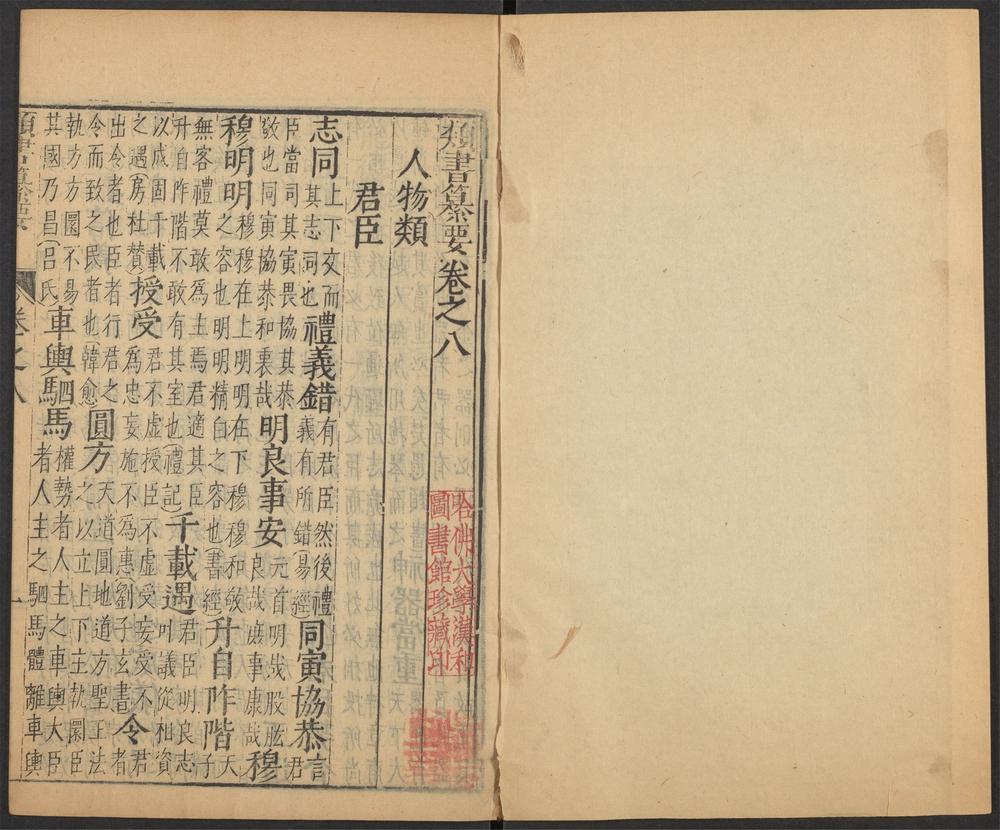 類書纂要卷之八
人物類
君臣
志同上下交而其志同也禮義錯有君臣然後禮義有所錯(易經)同寅協恭言君
臣當司其寅畏協其恭敬也同寅協恭和衷哉明良事安元首明哉股肱良哉庶事康哉穆
穆明明穆穆在上明明在下穆穆和敬之容也明明精白之容也(書經)升自阼階天子
無客禮莫敢爲主焉君適其臣升自阼階不敢有其室也(禮記)千載遇君臣明良志叶議從相資
以成固千載之遇(房杜贊)授受君不虛授臣不虛受妄受不爲忠妄施不爲惠(劉子玄書)令君者
出令者也臣者行君之令而致之民者也(韓愈)圓方天道圓地道方聖王法之以立上下主執圜臣
執方方圜不易其國乃昌(呂氏)車輿駟馬權勢者人主之車輿大臣者人主之駟馬體離車輿
類書纂要
卷之八
一
哈佛大學漢和
圖書館珍藏印